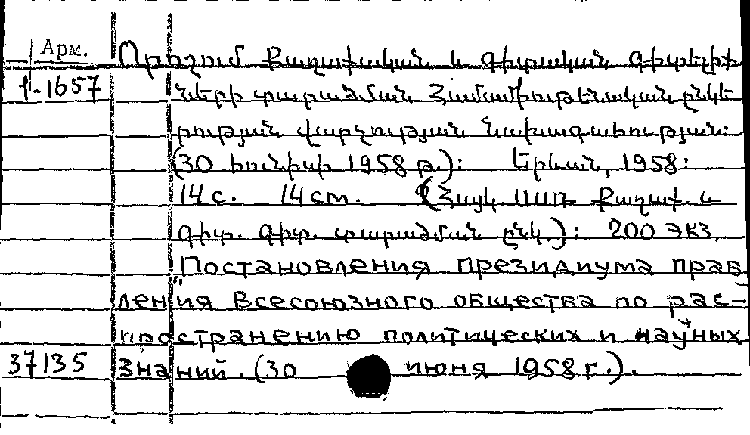 Арм. Որոշում Քաղաքական և գիտական գիտելիք
ների տարածման Համամիութենական ընկե
րության վարչության նախագահության:
(30 հունիսի 1958 թ.): Երևան, 1958:
14 с. 14 cm. (Հայկ. ՍՍՌ Քաղաք. և
գիտ. գիտ. տարածման ընկ.): 200 экз.
"Постановления президиума прав
ления Всесоюзного общества по рас-
пространению политических и научных
37135 знаний. (30 июня 1958 г.).